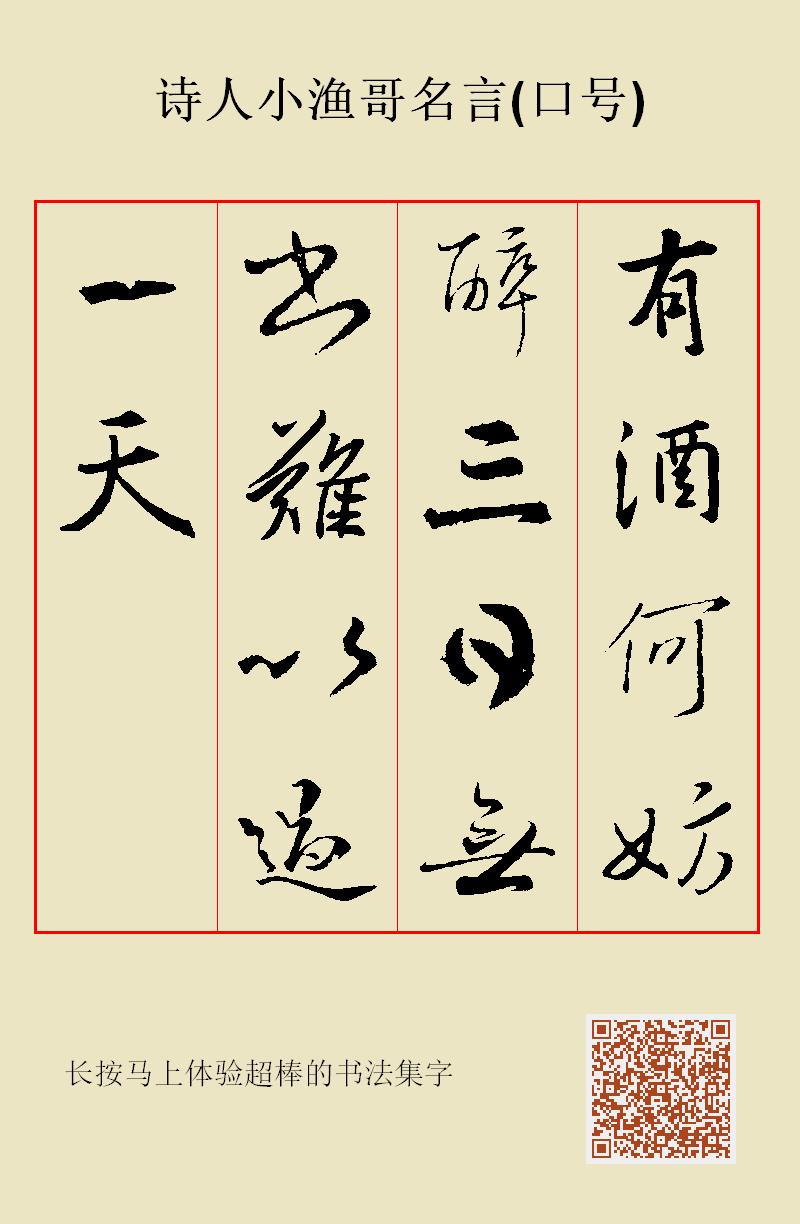 诗人小渔哥名言(口号)
有酒何妨
醉三日無
书難以過
一天
长按马上体验超棒的书法集字